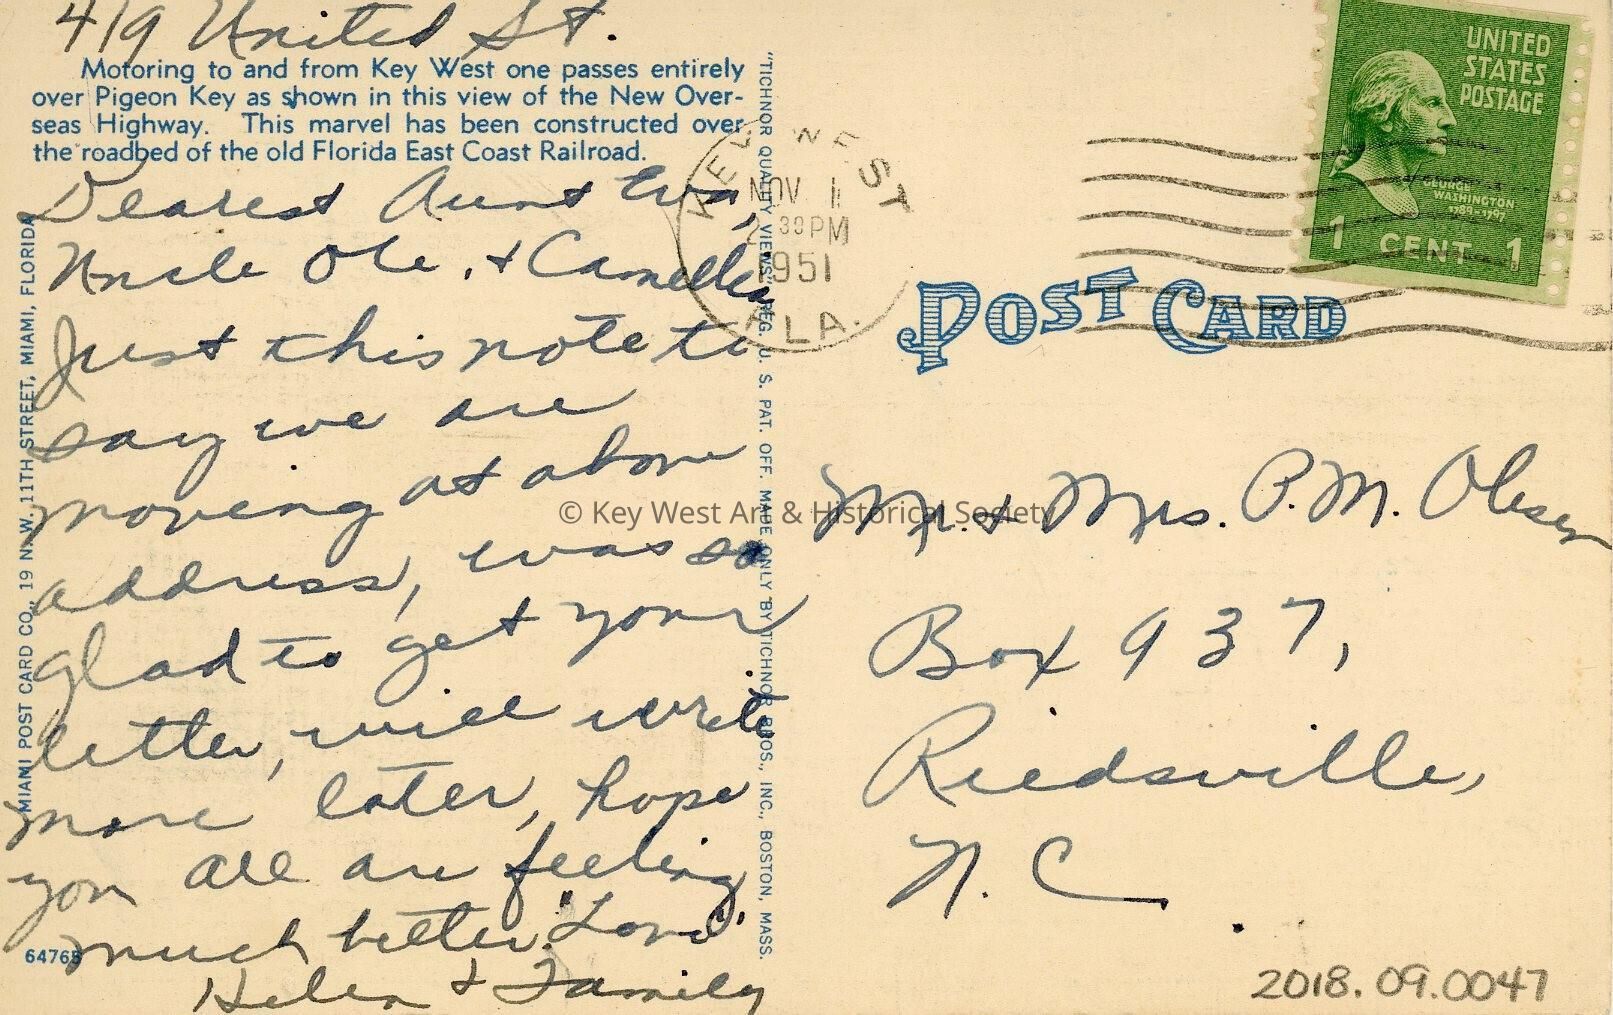 419 United St.
Motoring to and from Key West one passes entirely
over Pigeon Key as shown in this view of the New Over-
seas Highway. This marvel has been constructed over
the roadbed of the old Florida East Coast Railroad.
Dearest Aunt Eva,
Uncle Ole, & Camellia
Just this note to
say we are
moving at above
address, was so
glad to get your
letter, will write
more later, hope
you all are feeling
much better. "Love"
Helen & Family
64765
MIAMI POST CARD CO., 19 N. W. 11TH STREET, MIAMI, FLORIDA
"TICHNOR QUALITY VIEWS," REG. U. S. PAT. OFF. MADE ONLY BY TICHNOR BROS., INC., BOSTON, MASS.
KEY WEST
NOV 1
2 30 PM
1951
FLA.
UNITED
STATES
POSTAGE
GEORGE
WASHINGTON
1789-1797
1 CENT 1
POST CARD
Mr. & Mrs. P. M. Olesen
Box 937,
Riedsville,
N. C.
© Key West Art & Historical Society
2018.09.0047